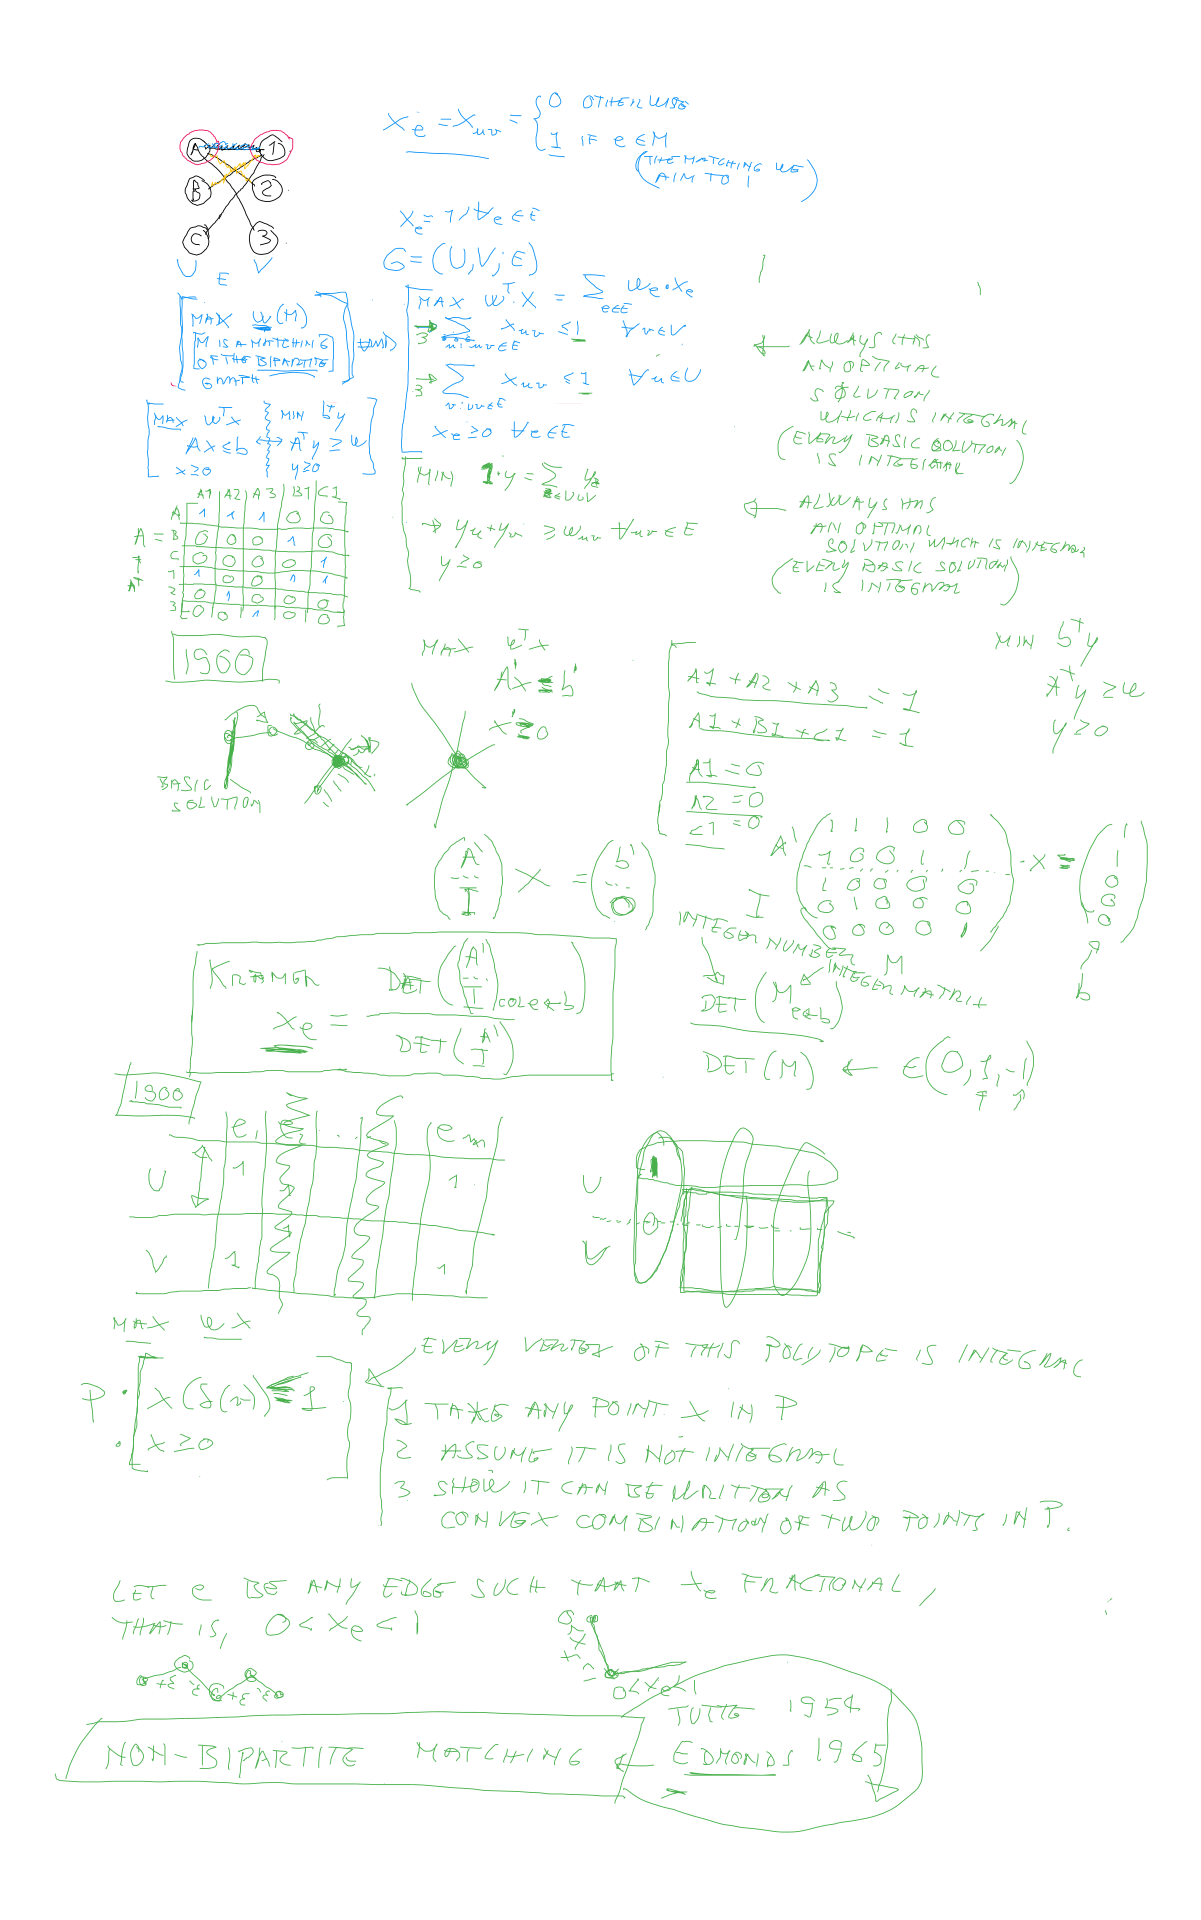 x_e = x_uv = { 0 OTHERWISE
1 IF e ∈ M
(THE MATCHING WE
AIM TO)
A 1
B 2
C 3
U E V
x_e = 1, ∀e ∈ E
G = (U, V; E)
MAX w(M)
M IS A MATCHING
OF THE BIPARTITE
GRAPH
MAX w^T·X = ∑_{e∈E} w_e·x_e
3 → ∑_{u:uv∈E} x_uv ≤ 1 ∀v∈V
3 → ∑_{v:uv∈E} x_uv ≤ 1 ∀u∈U
x_e ≥ 0 ∀e∈E
← ALWAYS HAS
AN OPTIMAL
SOLUTION
WHICH IS INTEGRAL
(EVERY BASIC SOLUTION
IS INTEGRAL)
MAX w^T x MIN b^T y
Ax ≤ b ↔ A^T y ≥ w
x ≥ 0 y ≥ 0
MIN 1·y = ∑_{z∈U∪V} y_z
→ y_u + y_v ≥ w_uv ∀uv ∈ E
y ≥ 0
← ALWAYS HAS
AN OPTIMAL
SOLUTION WHICH IS INTEGRAL
(EVERY BASIC SOLUTION
IS INTEGRAL)
A1 A2 A3 B1 C1
A 1 1 1 0 0
A = B 0 0 0 1 0
C 0 0 0 0 1
A^T 1 1 0 0 1 1
2 0 1 0 0 0
3 0 0 1 0 0
1900
MAX w^T x
A'x = b'
x' ≥ 0
BASIC
SOLUTION
A1 + A2 + A3 = 1
A1 + B1 + C1 = 1
A1 = 0
A2 = 0
C1 = 0
MIN b^T y
A^T y ≥ w
y ≥ 0
(A' / I) X = (b' / 0)
A' 1 1 1 0 0
1 0 0 1 1
I 1 0 0 0 0
0 1 0 0 0
0 0 0 0 1
· x =
1
1
0
0
0
M
b
KRAMER
x_e = DET((A' / I) COL e ← b) / DET(A' / I)
INTEGER NUMBER
INTEGER MATRIX
DET(M e←b)
DET(M) ← ∈ (0, 1, -1)
1900
e_1 e_2 ... e_m
U 1 1 1
V 1 1 1
U 1
V 0
MAX wx
P : [ x(δ(v)) ≤ 1
x ≥ 0 ]
EVERY VERTEX OF THIS POLYTOPE IS INTEGRAL
1 TAKE ANY POINT X IN P
2 ASSUME IT IS NOT INTEGRAL
3 SHOW IT CAN BE WRITTEN AS
CONVEX COMBINATION OF TWO POINTS IN P.
LET e BE ANY EDGE SUCH THAT x_e FRACTIONAL,
THAT IS, 0 < x_e < 1
+ε -ε +ε -ε
0 < x_f < 1
0 < x_e < 1
TUTTE 1954
NON-BIPARTITE MATCHING ← EDMONDS 1965